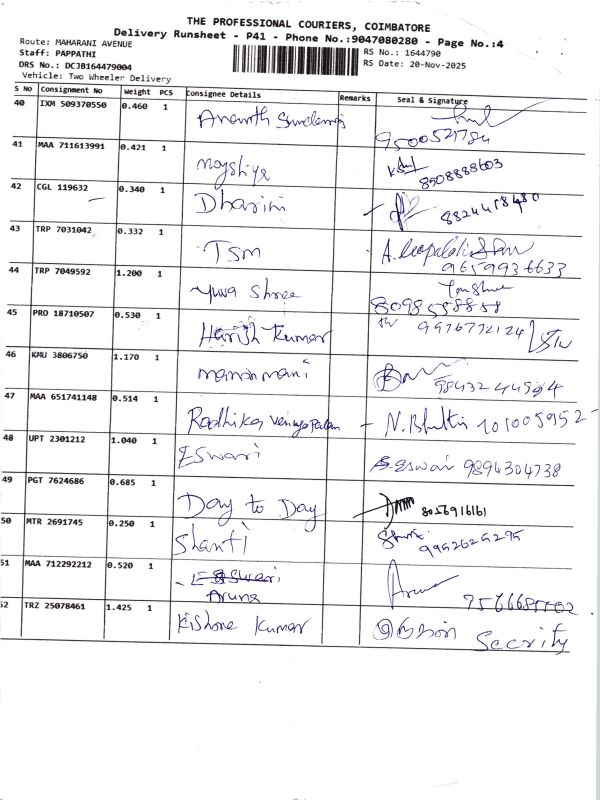 THE PROFESSIONAL COURIERS, COIMBATORE
Delivery Runsheet - P41 - Phone No.:9047080280 - Page No.:4
Route: MAHARANI AVENUE
Staff: PAPPATHI
DRS No.: DCJB164479004
Vehicle: Two Wheeler Delivery
RS No.: 1644790
RS Date: 20-Nov-2025
S No Consignment No Weight PCS Consignee Details Remarks Seal & Signature
40 IXM 509370550 0.460 1
9500521784
41 MAA 711613991 0.421 1
8508888603
42 CGL 119632 0.340 1 Dharini
43 TRP 7031042 0.332 1 TSM
9659936633
44 TRP 7049592 1.200 1 Yuva Shree
8098558858
45 PRO 18710507 0.530 1 Harish Kumar 9976772124
46 KMU 3806750 1.170 1
47 MAA 651741148 0.514 1 Radhika Venugopalan
48 UPT 2301212 1.040 1 Eswari
Eswari 9894304738
49 PGT 7624686 0.685 1 Day to Day
8056916161
50 MTR 2691745 0.250 1 Shanti
51 MAA 712292212 0.520 1 Eswari
Aruna
52 TRZ 25078461 1.425 1 Kishore Kumar Secrity